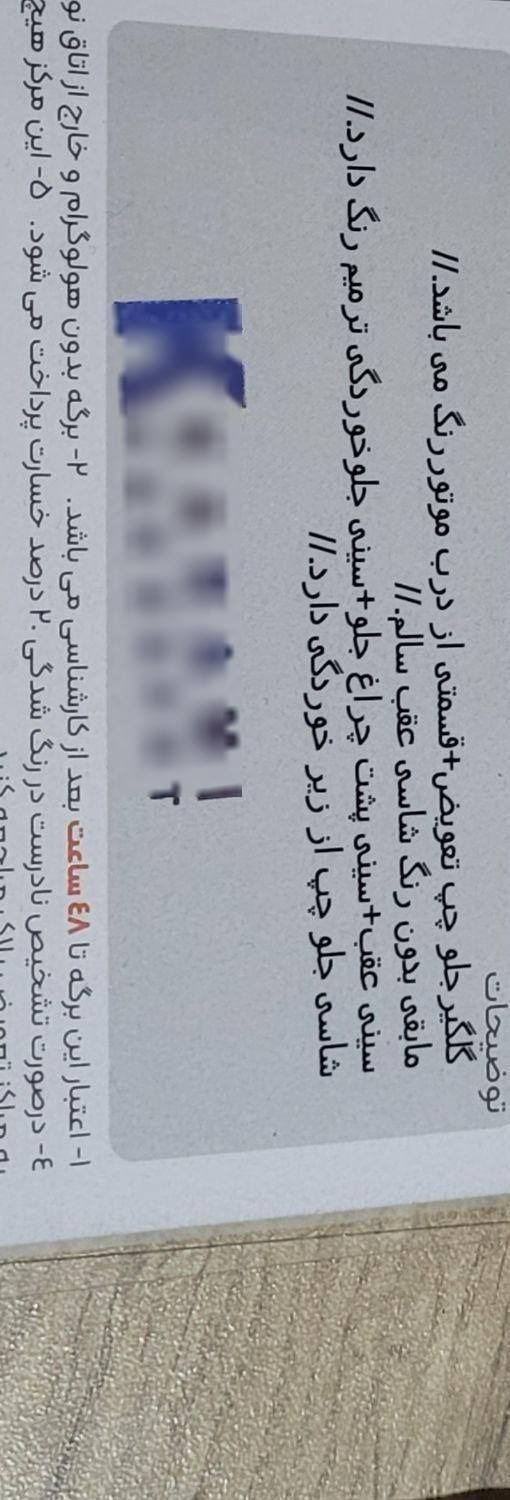 توضیحات
گلگیر جلو چپ تعویض+قسمتی از درب موتور رنگ می باشد.//
مابقی بدون رنگ شاسی عقب سالم.//
سینی عقب+سینی پشت چراغ جلو+سینی جلوخوردگی ترمیم رنگ دارد.//
شاسی جلو چپ از زیر خوردگی دارد.//
۱- اعتبار این برگه تا ٤٨ ساعت بعد از کارشناسی می باشد. ۲- برگه بدون هولوگرام و خارج از اتاق
٤- درصورت تشخیص نادرست در رنگ شدگی ۲۰ درصد خسارت پرداخت می شود. ۵- این مرکز هیچ